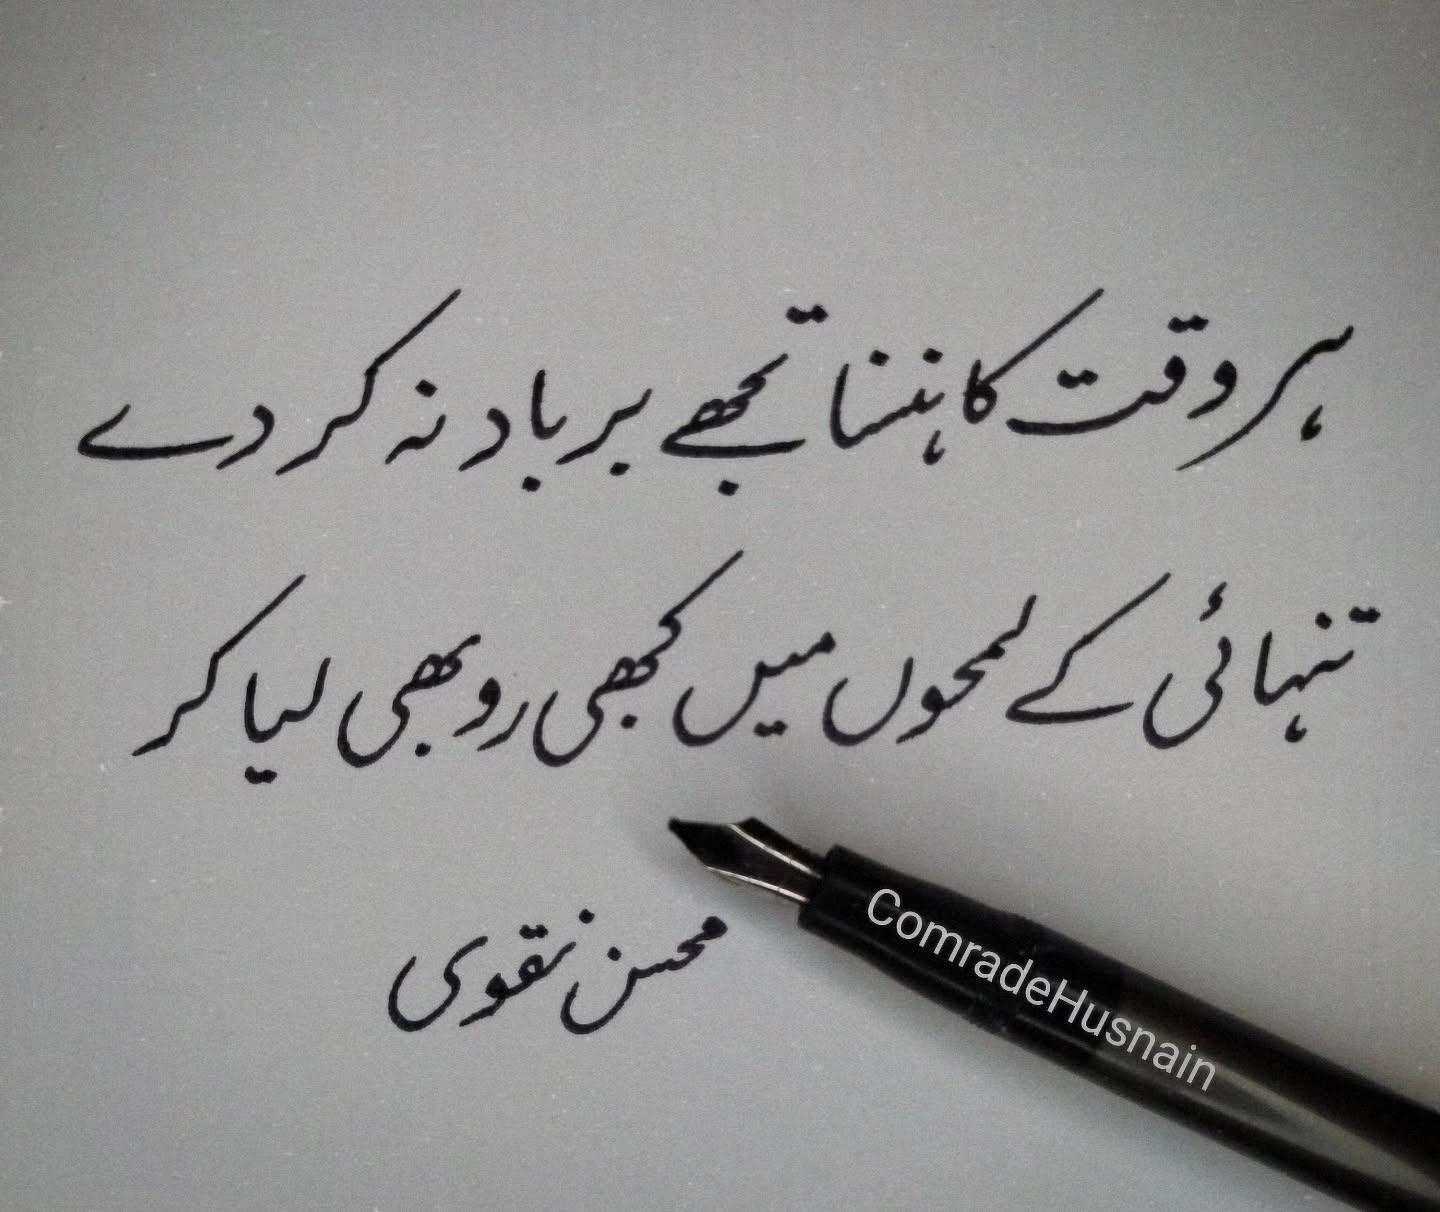 ہر وقت کا ہنسنا تجھے برباد نہ کر دے
تنہائی کے لمحوں میں کبھی رو بھی لیا کر
محسن نقوی
ComradeHusnain